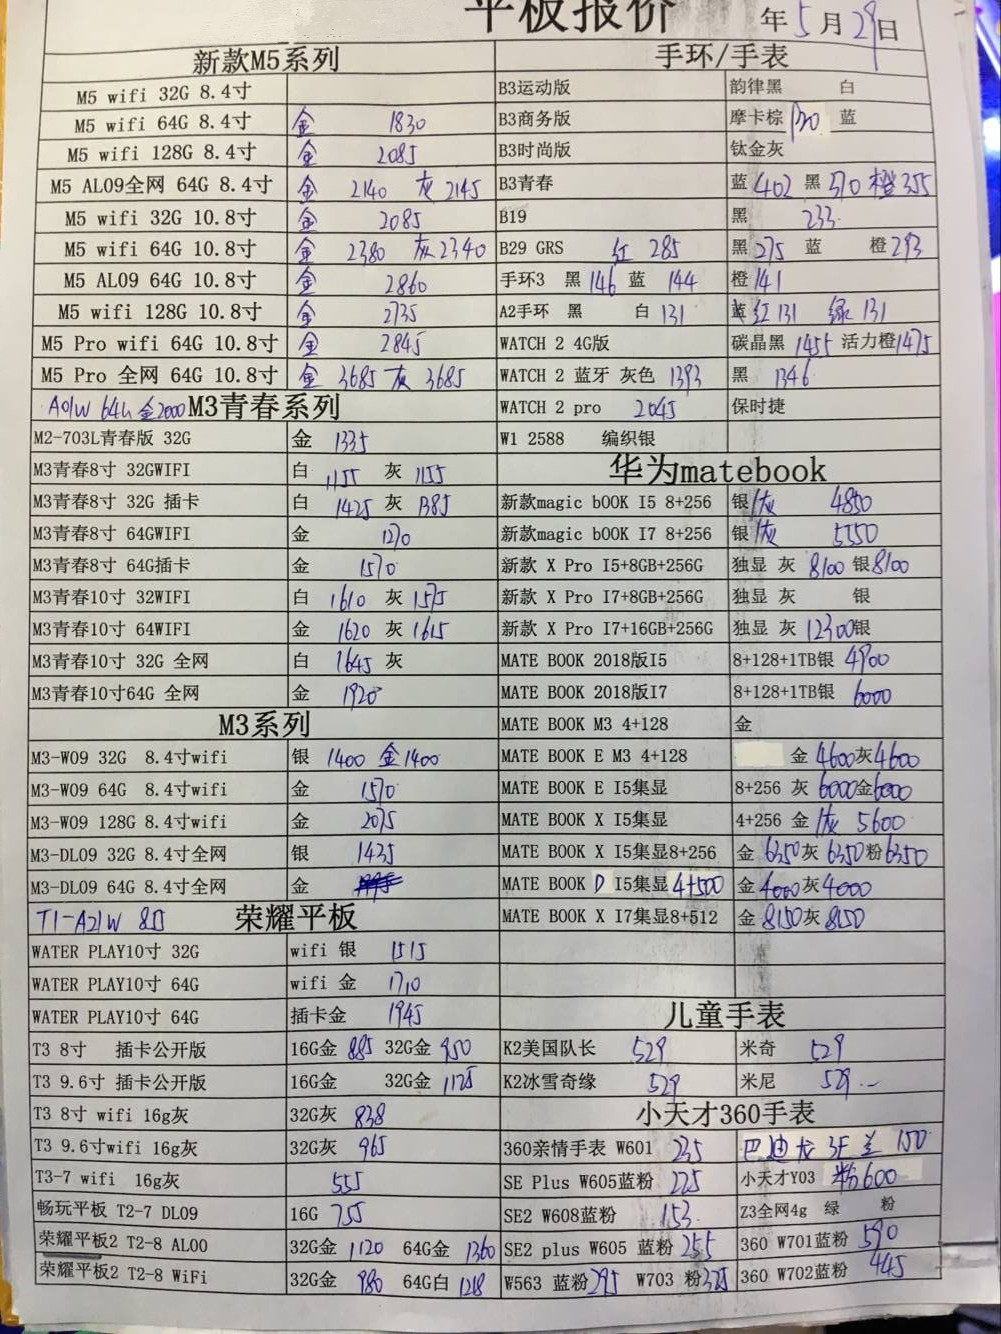 平板报价
年5月29日
新款M5系列
M5 wifi 32G 8.4寸
M5 wifi 64G 8.4寸 金 1830
M5 wifi 128G 8.4寸 金 2085
M5 AL09全网 64G 8.4寸 金 2140 灰 2145
M5 wifi 32G 10.8寸 金 2085
M5 wifi 64G 10.8寸 金 2380 灰 2340
M5 AL09 64G 10.8寸 金 2860
M5 wifi 128G 10.8寸 金 2735
M5 Pro wifi 64G 10.8寸 金 2845
M5 Pro 全网 64G 10.8寸 金 3685 灰 3685
A01W 64G 金2000 M3青春系列
M2-703L青春版 32G 金 1335
M3青春8寸 32GWIFI 白 1155 灰 1155
M3青春8寸 32G 插卡 白 1425 灰 1385
M3青春8寸 64GWIFI 金 1270
M3青春8寸 64G插卡 金 1570
M3青春10寸 32WIFI 白 1610 灰 1575
M3青春10寸 64WIFI 金 1620 灰 1615
M3青春10寸 32G 全网 白 1645 灰
M3青春10寸64G 全网 金 1920
M3系列
M3-W09 32G 8.4寸wifi 银 1400 金 1400
M3-W09 64G 8.4寸wifi 金 1570
M3-W09 128G 8.4寸wifi 金 2075
M3-DL09 32G 8.4寸全网 银 1435
M3-DL09 64G 8.4寸全网 金
T1-A21W 855 荣耀平板
WATER PLAY10寸 32G wifi 银 1515
WATER PLAY10寸 64G wifi 金 1710
WATER PLAY10寸 64G 插卡金 1945
T3 8寸 插卡公开版 16G金 885 32G金 950
T3 9.6寸 插卡公开版 16G金 32G金 1125
T3 8寸 wifi 16g灰 32G灰 838
T3 9.6寸wifi 16g灰 32G灰 965
T3-7 wifi 16g灰 555
畅玩平板 T2-7 DL09 16G 755
荣耀平板2 T2-8 AL00 32G金 1120 64G金 1360
荣耀平板2 T2-8 WiFi 32G金 980 64G白 1218
手环/手表
B3运动版 韵律黑 白
B3商务版 摩卡棕 1320 蓝
B3时尚版 钛金灰
B3青春 蓝 402 黑 370 橙 355
B19 黑 233
B29 GRS 红 285 黑 275 蓝 橙 293
手环3 黑 146 蓝 144 橙 141
A2手环 黑 白 131 蓝 红 131 绿 131
WATCH 2 4G版 碳晶黑 1455 活力橙 1475
WATCH 2 蓝牙 灰色 1393 黑 1346
WATCH 2 pro 2045 保时捷
W1 2588 编织银
华为matebook
新款magic bOOK I5 8+256 银/灰 4850
新款magic bOOK I7 8+256 银/灰 5550
新款 X Pro I5+8GB+256G 独显 灰 8100 银 8100
新款 X Pro I7+8GB+256G 独显 灰 银
新款 X Pro I7+16GB+256G 独显 灰 12300 银
MATE BOOK 2018版I5 8+128+1TB银 4900
MATE BOOK 2018版I7 8+128+1TB银 6000
MATE BOOK M3 4+128 金
MATE BOOK E M3 4+128 金 4600 灰 4600
MATE BOOK E I5集显 8+256 灰 6000 金 6000
MATE BOOK X I5集显 4+256 金/灰 5600
MATE BOOK X I5集显8+256 金 6350 灰 6350 粉 6350
MATE BOOK D I5集显 4+500 金 4000 灰 4000
MATE BOOK X I7集显8+512 金 8150 灰 8150
儿童手表
K2美国队长 529 米奇 529
K2冰雪奇缘 529 米尼 529
小天才360手表
360亲情手表 W601 235 巴迪龙 3F 蓝 150
SE Plus W605蓝粉 225 小天才Y03 粉 600
SE2 W608蓝粉 153 Z3全网4g 绿 粉
SE2 plus W605 蓝粉 255 360 W701蓝粉 590
W563 蓝粉 295 W703 粉 375 360 W702蓝粉 445